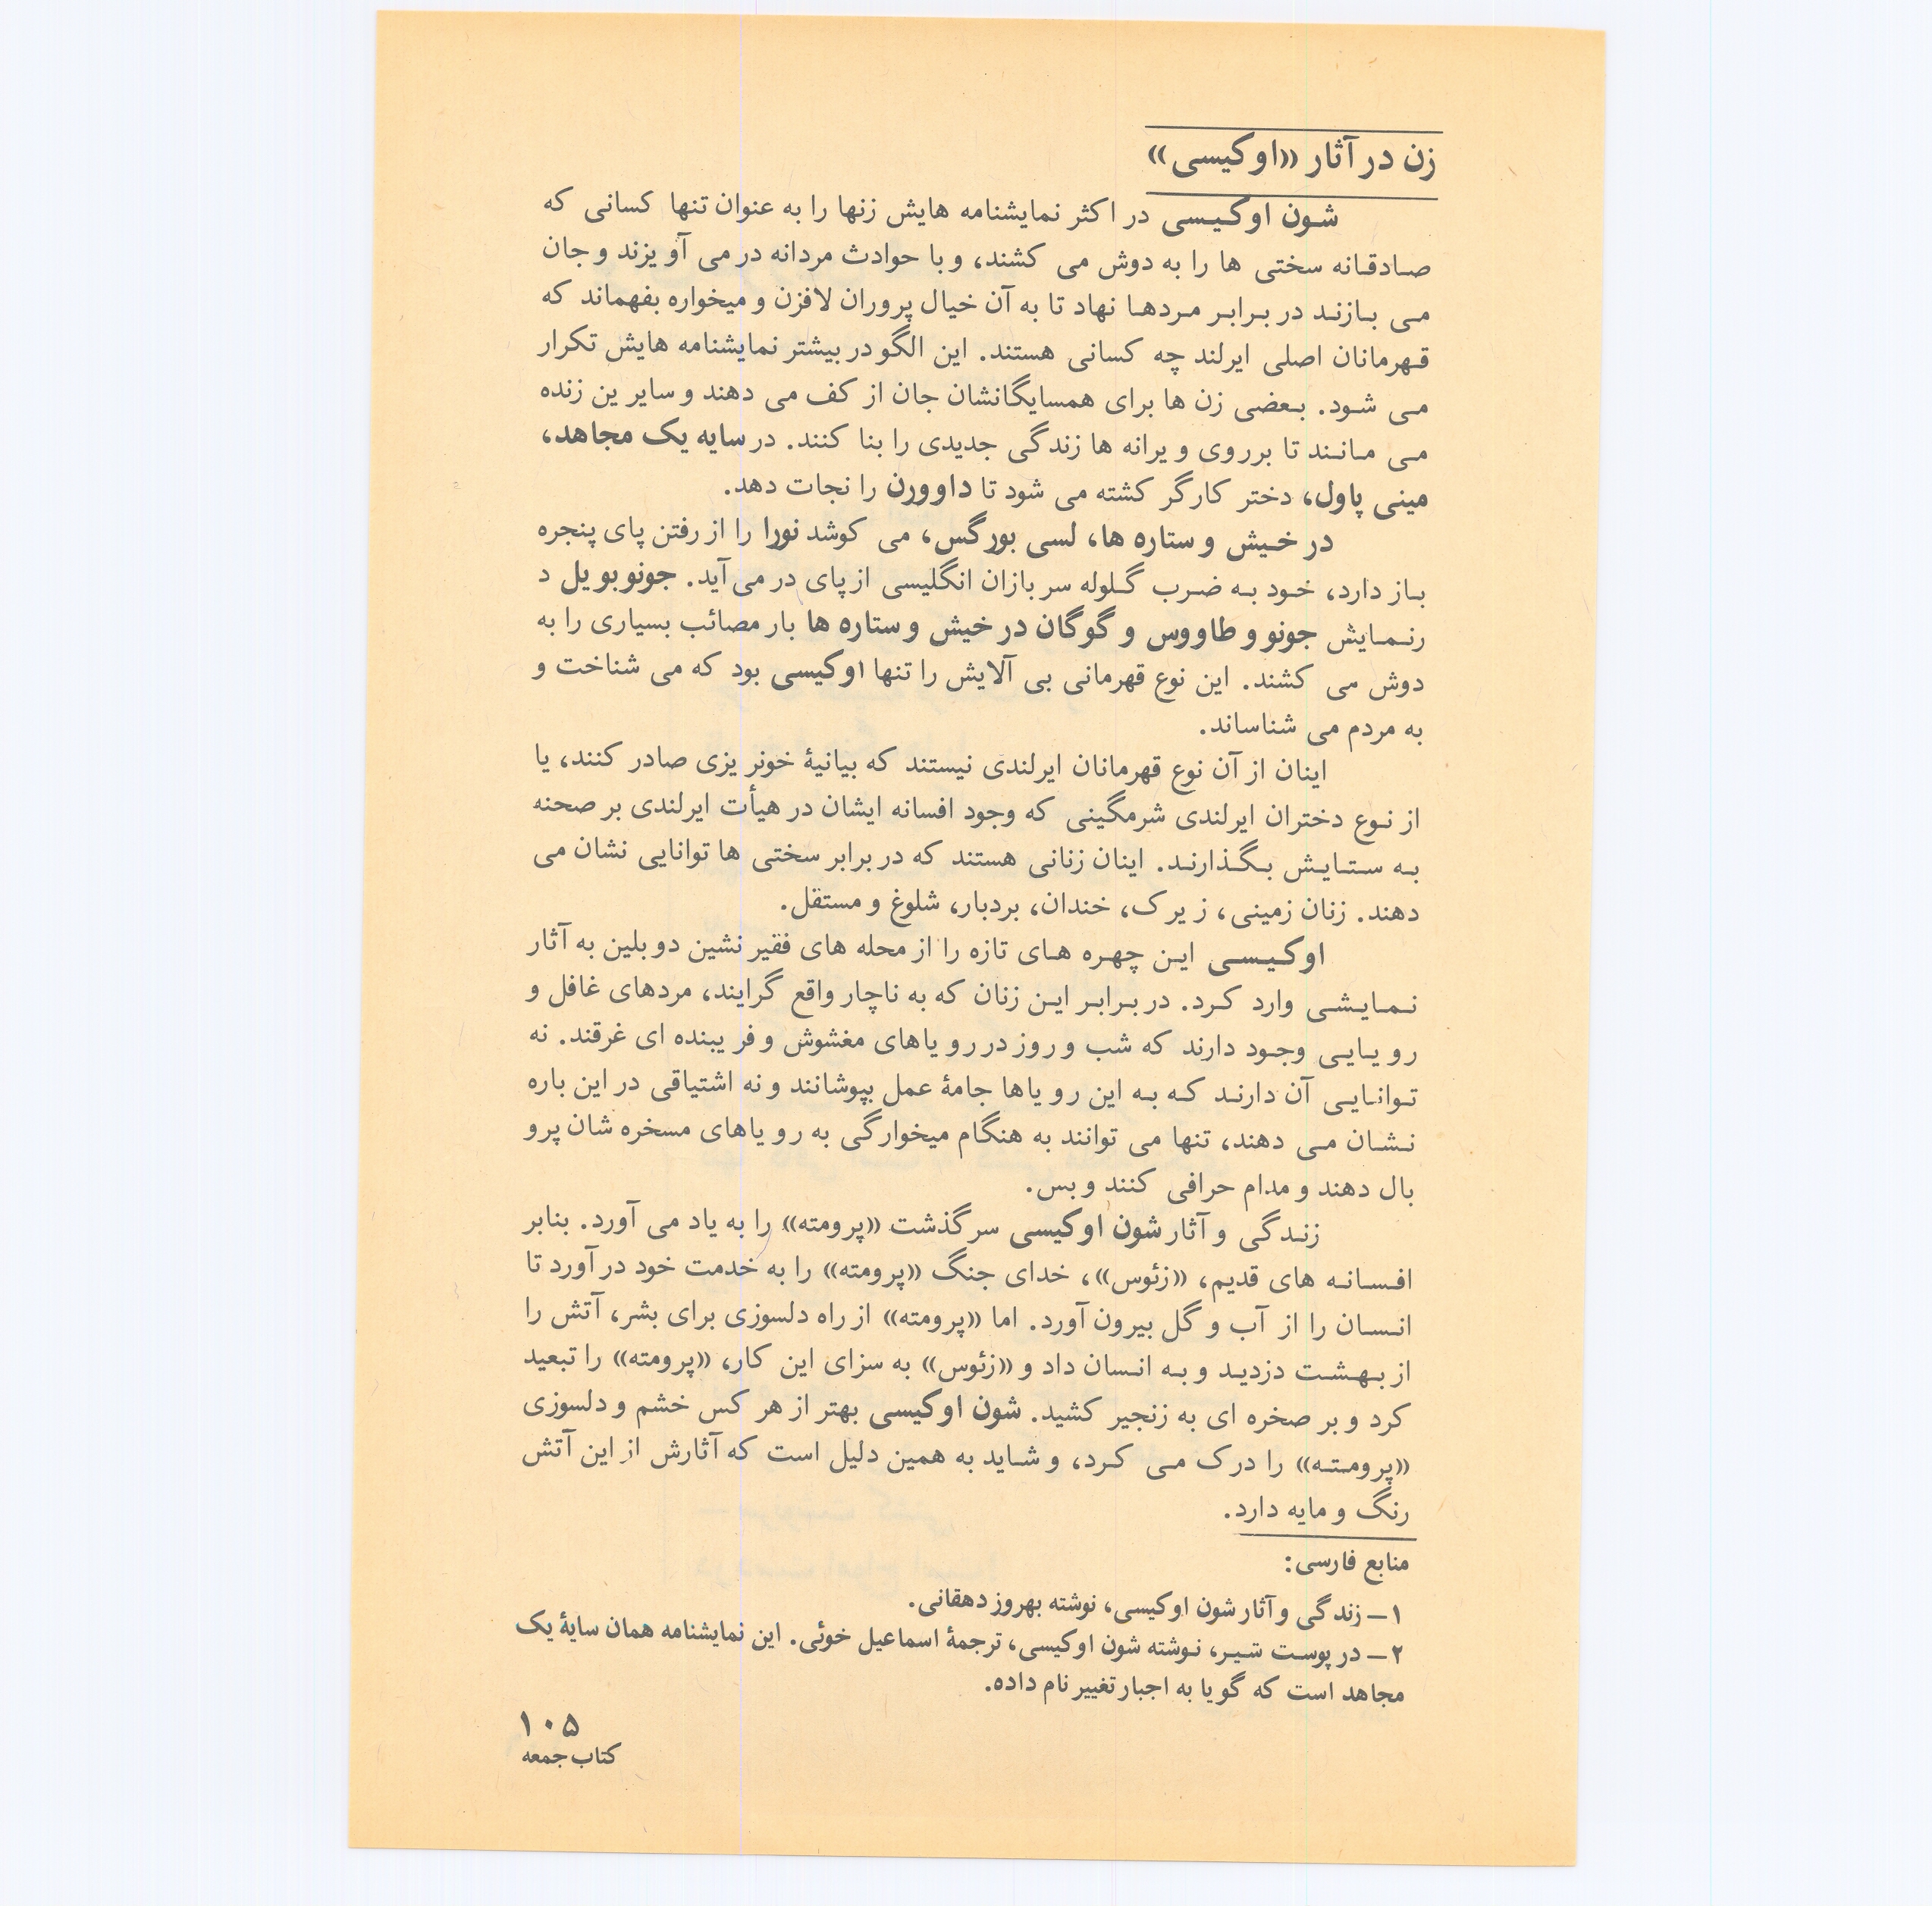 زن در آثار «اوکیسی»
شون اوکیسی در اکثر نمایشنامه هایش زنها را به عنوان تنها کسانی که
صادقانه سختی ها را به دوش می کشند، و با حوادث مردانه در می آویزند و جان
می بازند در برابر مردها نهاد تا به آن خیال پروران لافزن و میخواره بفهماند که
قهرمانان اصلی ایرلند چه کسانی هستند. این الگو در بیشتر نمایشنامه هایش تکرار
می شود. بعضی زن ها برای همسایگانشان جان از کف می دهند و سایر ین زنده
می مانند تا بر روی ویرانه ها زندگی جدیدی را بنا کنند. در سایه یک مجاهد،
مینی پاول، دختر کارگر کشته می شود تا داوورن را نجات دهد.
در خیش و ستاره ها، لسی بورگس، می کوشد نورا را از رفتن پای پنجره
باز دارد، خود به ضرب گلوله سربازان انگلیسی از پای در می آید. جونو بویل د
رنمایش جونو و طاووس و گوگان در خیش و ستاره ها بار مصائب بسیاری را به
دوش می کشند. این نوع قهرمانی بی آلایش را تنها اوکیسی بود که می شناخت و
به مردم می شناساند.
اینان از آن نوع قهرمانان ایرلندی نیستند که بیانیهٔ خونریزی صادر کنند، یا
از نوع دختران ایرلندی شرمگینی که وجود افسانه ایشان در هیأت ایرلندی بر صحنه
به ستایش بگذارند. اینان زنانی هستند که در برابر سختی ها توانایی نشان می
دهند. زنان زمینی، زیرک، خندان، بردبار، شلوغ و مستقل.
اوکیسی این چهره های تازه را از محله های فقیر نشین دوبلین به آثار
نمایشی وارد کرد. در برابر این زنان که به ناچار واقع گرایند، مردهای غافل و
رویایی وجود دارند که شب و روز در رویاهای مغشوش و فریبنده ای غرقند. نه
توانایی آن دارند که به این رویاها جامهٔ عمل بپوشانند و نه اشتیاقی در این باره
نشان می دهند، تنها می توانند به هنگام میخوارگی به رویاهای مسخره شان پرو
بال دهند و مدام حرافی کنند و بس.
زندگی و آثار شون اوکیسی سرگذشت «پرومته» را به یاد می آورد. بنابر
افسانه های قدیم، «زئوس»، خدای جنگ «پرومته» را به خدمت خود در آورد تا
انسان را از آب و گل بیرون آورد. اما «پرومته» از راه دلسوزی برای بشر، آتش را
از بهشت دزدید و به انسان داد و «زئوس» به سزای این کار، «پرومته» را تبعید
کرد و بر صخره ای به زنجیر کشید. شون اوکیسی بهتر از هر کس خشم و دلسوزی
«پرومته» را درک می کرد، و شاید به همین دلیل است که آثارش از این آتش
رنگ و مایه دارد.
منابع فارسی:
۱– زندگی و آثار شون اوکیسی، نوشته بهروز دهقانی.
۲– در پوست شیر، نوشته شون اوکیسی، ترجمهٔ اسماعیل خوئی. این نمایشنامه همان سایهٔ یک
مجاهد است که گویا به اجبار تغییر نام داده.
۱۰۵
کتاب جمعه